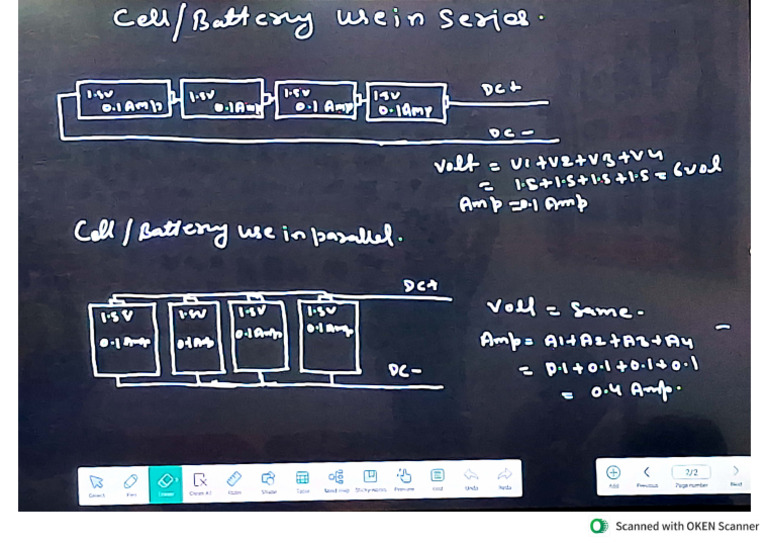 Cell/Battery use in series.
1.5V 1.5V 1.5V 1.5V
0.1 Amp 0.1 Amp 0.1 Amp 0.1 Amp
DC+
DC-
Volt = V1+V2+V3+V4
= 1.5+1.5+1.5+1.5 = 6 vol
Amp = 0.1 Amp
Cell/Battery use in parallel.
DC+
1.5V 1.5V 1.5V 1.5V
0.1 Amp 0.1 Amp 0.1 Amp 0.1 Amp
DC-
Volt = Same.
Amp = A1+A2+A3+A4
= 0.1+0.1+0.1+0.1
= 0.4 Amp.
Select Pen Eraser Clear All Ruler Shape Table Mind map Sticky notes Undo Redo
Add Previous 2/2 Page number Next
Scanned with OKEN Scanner